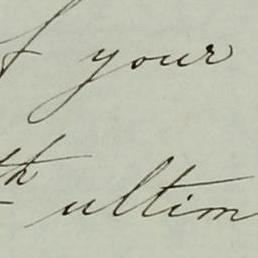 of your
th ultim